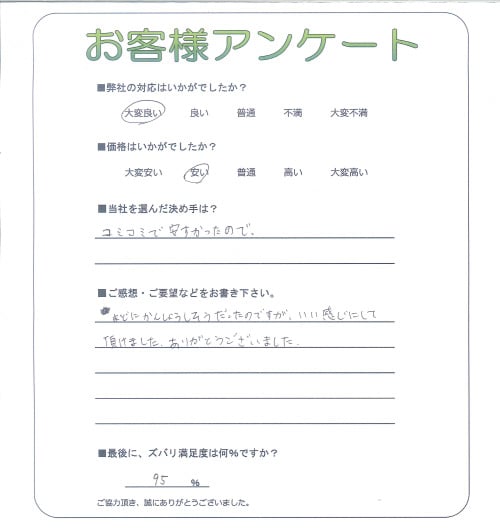 お客様アンケート
■弊社の対応はいかがでしたか？
大変良い 良い 普通 不満 大変不満
■価格はいかがでしたか？
大変安い 安い 普通 高い 大変高い
■当社を選んだ決め手は？
コミコミで安すかったので、
■ご感想・ご要望などをお書き下さい。
にかんしょうしそうだったのですが、いい感じにして
頂けました、ありがとうございました。
■最後に、ズバリ満足度は何%ですか？
95 %
ご協力頂き、誠にありがとうございました。